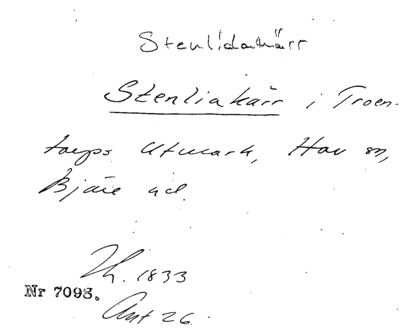 Stenlidakärr
Stenliakärr i Troen-
torps Utmark, Hov sn,
Bjäre hd.
Th. 1833
Nr 7093.
Ant 26.